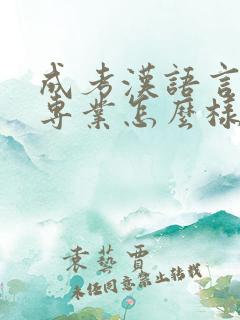 成考漢語言
專業怎麼樣
袁藝賈
未经同意禁止转载